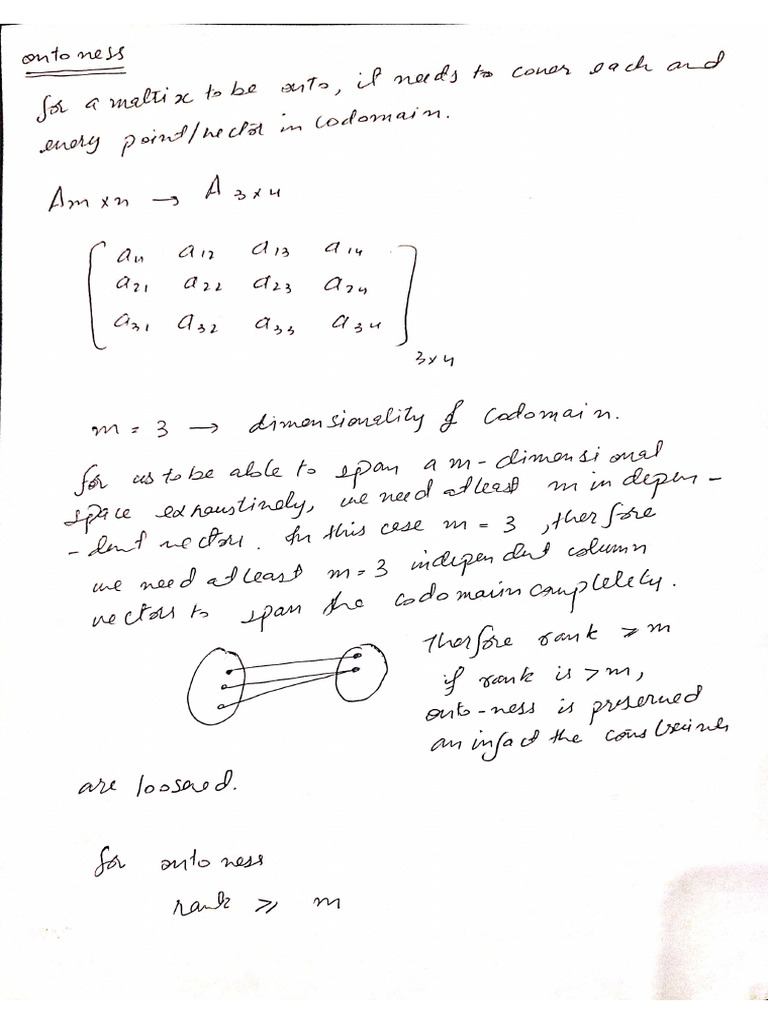 onto ness
for a matrix to be onto, it needs to cover each and
every point/vector in codomain.
Am×n → A3×4
a11 a12 a13 a14
a21 a22 a23 a24
a31 a32 a33 a34
3×4
m = 3 → dimensionality of codomain.
for us to be able to span a m-dimensional
space exhaustively, we need atleast m indepen-
-dent vectors. In this case m = 3, therfore
we need atleast m=3 independent column
vectors to span the codomain completely.
Therfore rank ≥ m
if rank is > m,
onto-ness is preserved
an infact the constraines
are loosered.
for onto ness
rank ≥ m